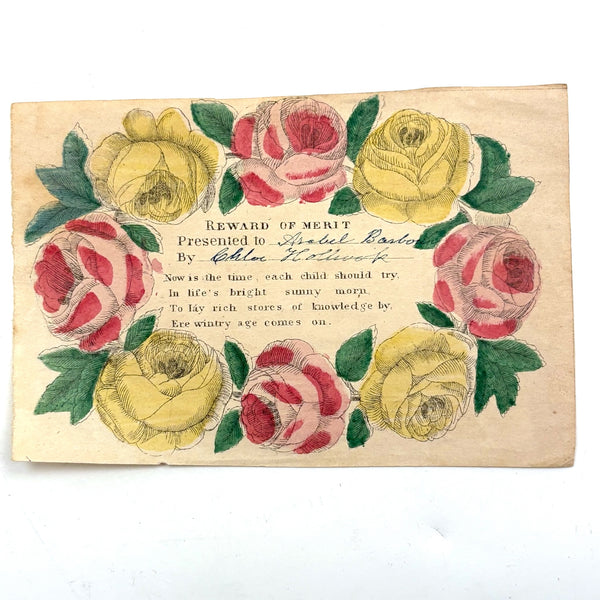 REWARD OF MERIT
Presented to Arabel Barbo
By Chloe
Now is the time, each child should try.
In life's bright sunny morn,
To lay rich stores of knowledge by,
Ere wintry age comes on.